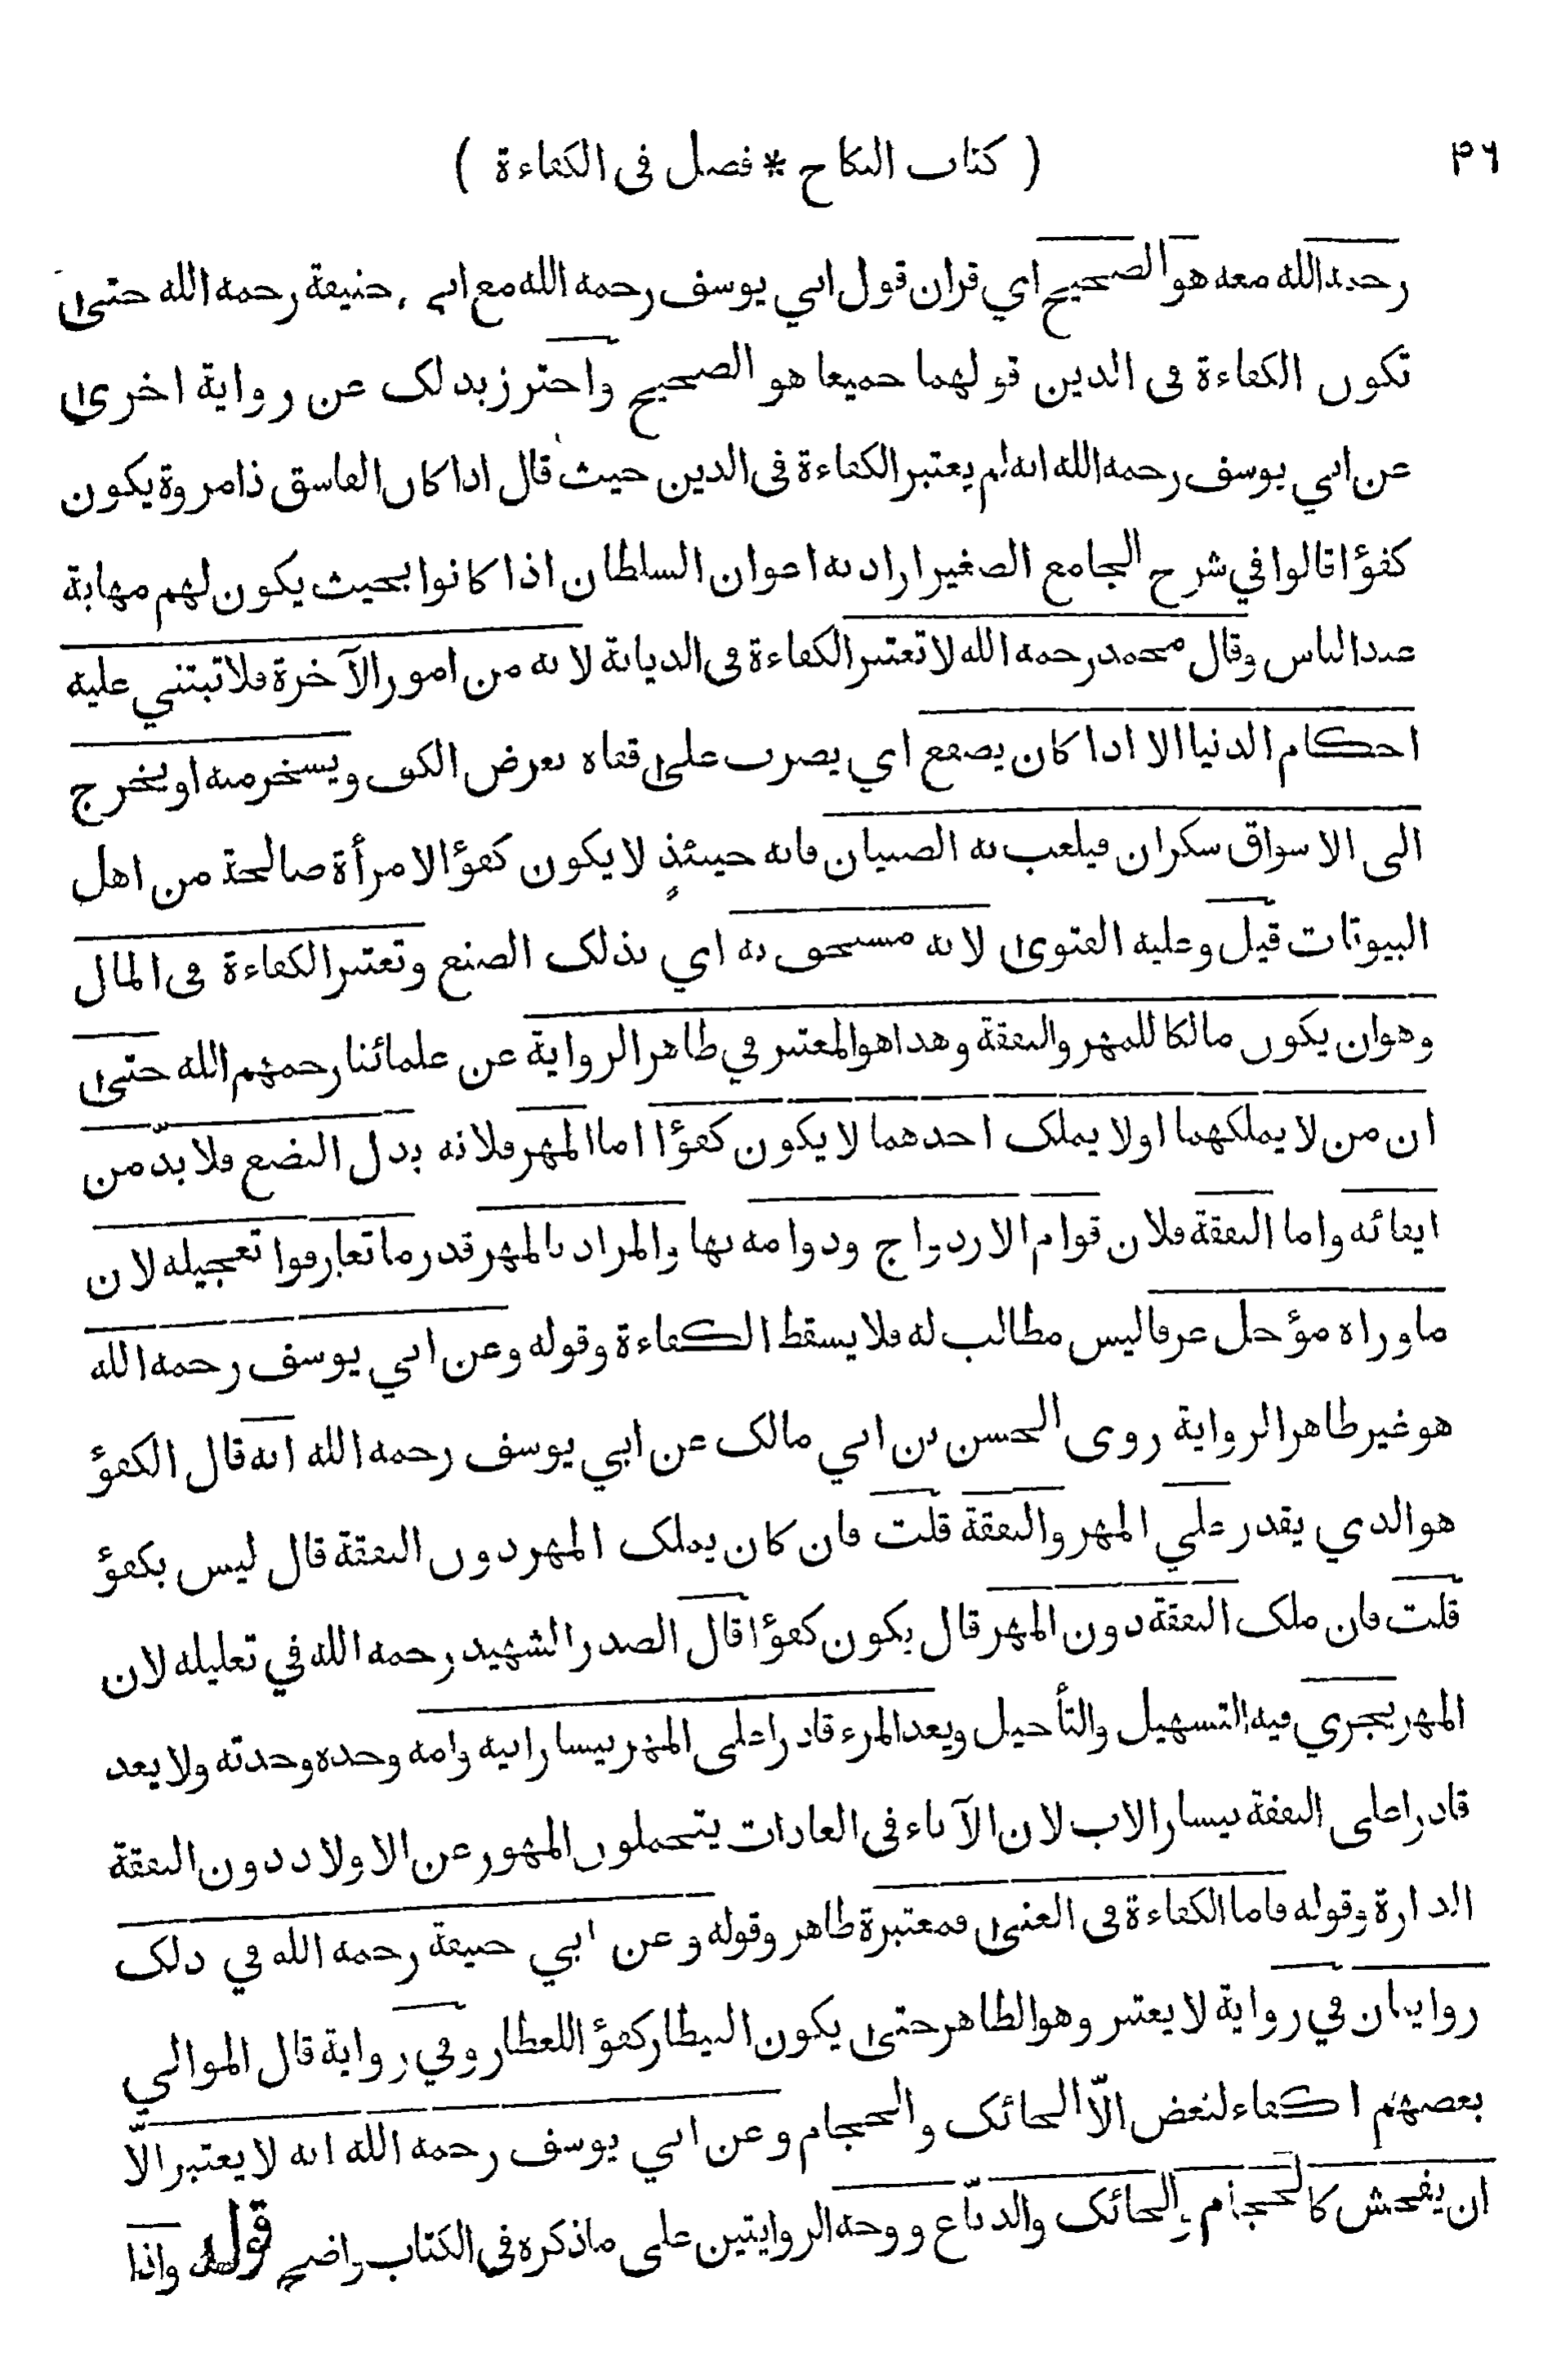 ٣٦ ( كتاب النكاح * فصل في الكفاءة )
رحمه الله معه هو الصحيح اي قران قول ابي يوسف رحمه الله مع ابي حنيفة رحمه الله حتى
تكون الكفاءة في الدين قولهما جميعا هو الصحيح واحترز بذلك عن رواية اخرى
عن ابي يوسف رحمه الله انه لم يعتبر الكفاءة في الدين حيث قال اذا كان الفاسق ذا مروة يكون
كفؤا قالوا في شرح الجامع الصغير اراد به اعوان السلطان اذا كانوا بحيث يكون لهم مهابة
عند الناس وقال محمد رحمه الله لا تعتبر الكفاءة في الديانة لانه من امور الآخرة فلا تبتني عليه
احكام الدنيا الا اذا كان يصفع اي يضرب على قفاه بعرض الكف ويسخر منه او يخرج
الى الاسواق سكران فيلعب به الصبيان فانه حينئذٍ لا يكون كفؤ الامرأة صالحة من اهل
البيوتات قيل وعليه الفتوى لانه مستحق به اي بذلك الصنع وتعتبر الكفاءة في المال
وهو ان يكون مالكا للمهر والنفقة وهذا هو المعتبر في ظاهر الرواية عن علمائنا رحمهم الله حتى
ان من لا يملكهما او لا يملك احدهما لا يكون كفؤا اما المهر فلانه بدل البضع فلا بدّ من
ايفائه واما النفقة فلان قوام الازدواج ودوامه بها والمراد بالمهر قدر ما تعارفوا تعجيله لان
ما وراه مؤجل عرفا ليس مطالب له فلا يسقط الكفاءة وقوله وعن ابي يوسف رحمه الله
هو غير ظاهر الرواية روى الحسن بن ابي مالك عن ابي يوسف رحمه الله انه قال الكفؤ
هو الذي يقدر على المهر والنفقة قلت فان كان يملك المهر دون النفقة قال ليس بكفؤ
قلت فان ملك النفقة دون المهر قال يكون كفؤا قال الصدر الشهيد رحمه الله في تعليله لان
المهر يجري فيه التسهيل والتأجيل ويعد المرء قادرا على المهر بيسار ابيه وامه وجده وجدته ولا يعد
قادرا على النفقة بيسار الاب لان الآباء في العادات يتحملون المهور عن الاولاد دون النفقة
الدارة وقوله فاما الكفاءة في الغنى فمعتبرة ظاهر وقوله وعن ابي حنيفة رحمه الله في ذلك
روايتان في رواية لا يعتبر وهو الظاهر حتى يكون البيطار كفؤ اللعطار وفي رواية قال الموالي
بعضهم اكفاء لبعض الّا الحائك والحجام وعن ابي يوسف رحمه الله انه لا يعتبر الّا
ان يفحش كالحجام والحائك والدبّاغ ووجه الروايتين على ما ذكره في الكتاب واضح قوله واذا